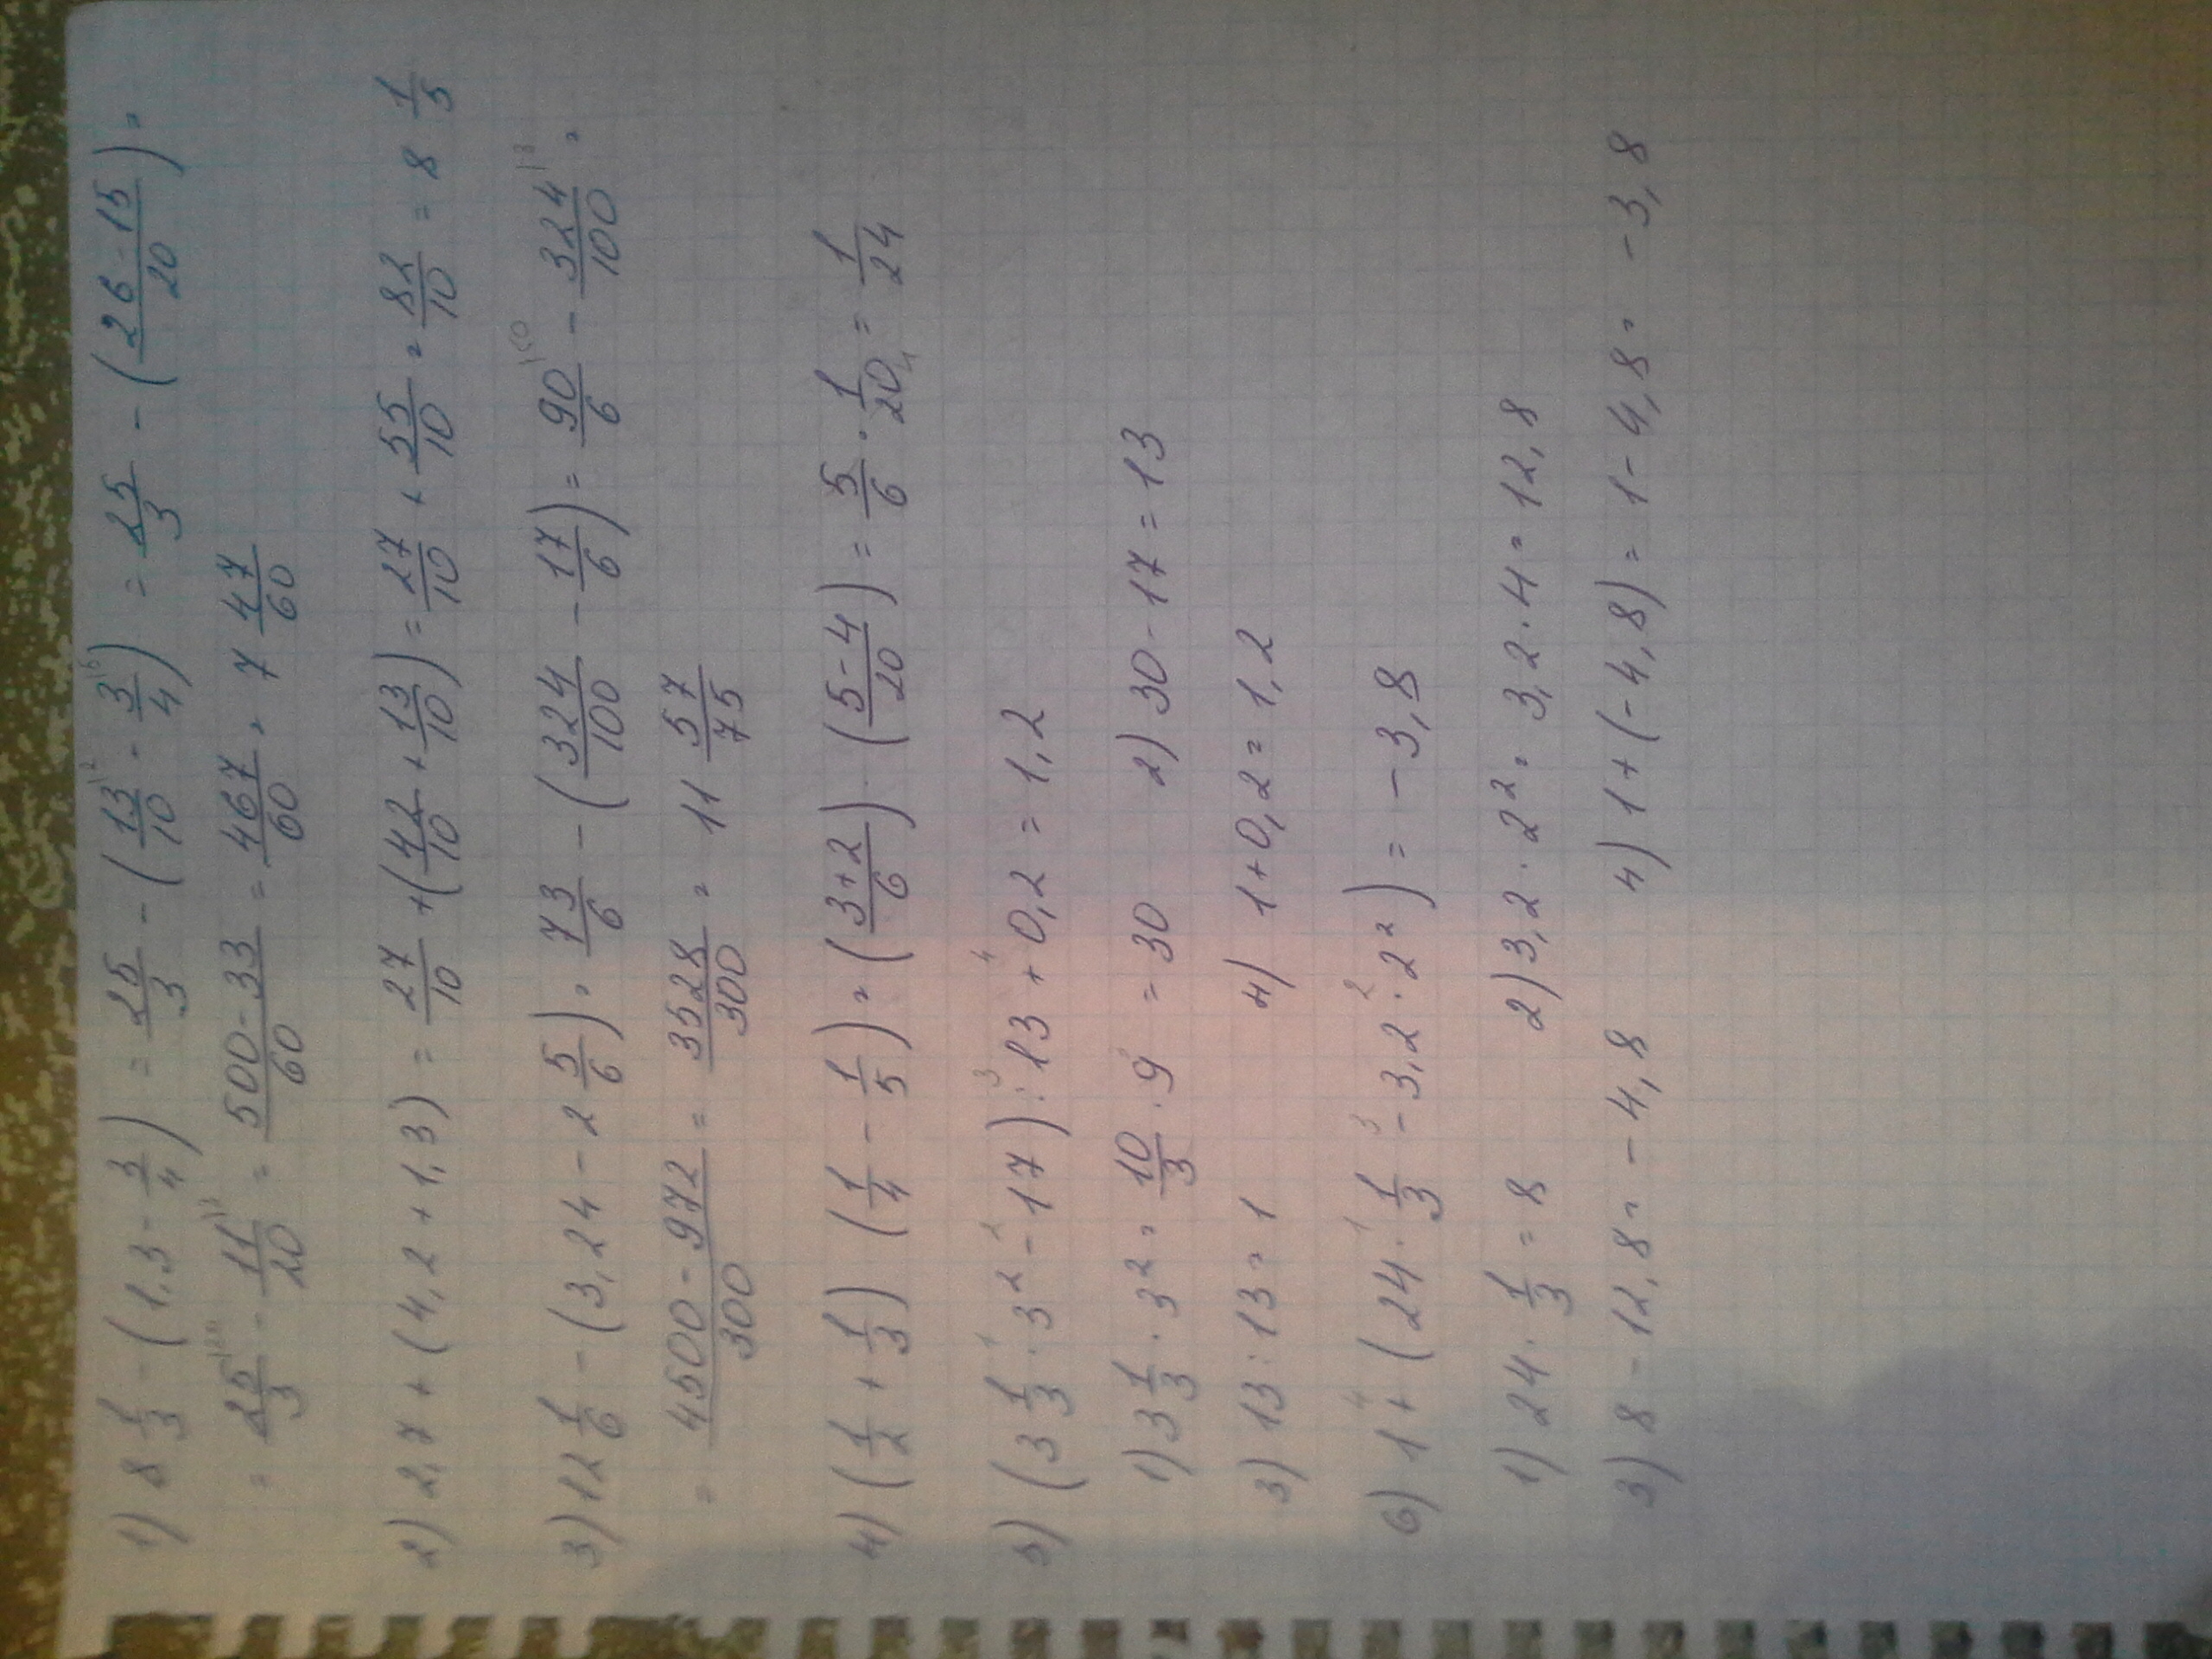 1) 8 1/3 - (1,3 - 3/4) = 25/3 - (13/10 - 3/4) = 25/3 - ((26-15)/20) =
= 25/3 - 11/20 = (500-33)/60 = 467/60 = 7 47/60
2) 2,7 + (4,2 + 1,3) = 27/10 + (42/10 + 13/10) = 27/10 + 55/10 = 82/10 = 8 1/5
3) 12 1/6 - (3,24 - 2 5/6) = 73/6 - (324/100 - 17/6) = 90/6 - 324/100 =
= (4500-972)/300 = 3528/300 = 11 57/75
4) (1/2 + 1/3) · (1/4 - 1/5) = ((3+2)/6) · ((5-4)/20) = 5/6 · 1/20 = 1/24
5) (3 1/3 · 3² - 17) : 13 + 0,2 = 1,2
1) 3 1/3 · 3² = 10/3 · 9 = 30 2) 30 - 17 = 13
3) 13 : 13 = 1 4) 1 + 0,2 = 1,2
6) 1 + (24 · 1/3 - 3,2 · 2²) = -3,8
1) 24 · 1/3 = 8 2) 3,2 · 2² = 3,2 · 4 = 12,8
3) 8 - 12,8 = -4,8 4) 1 + (-4,8) = 1 - 4,8 = -3,8